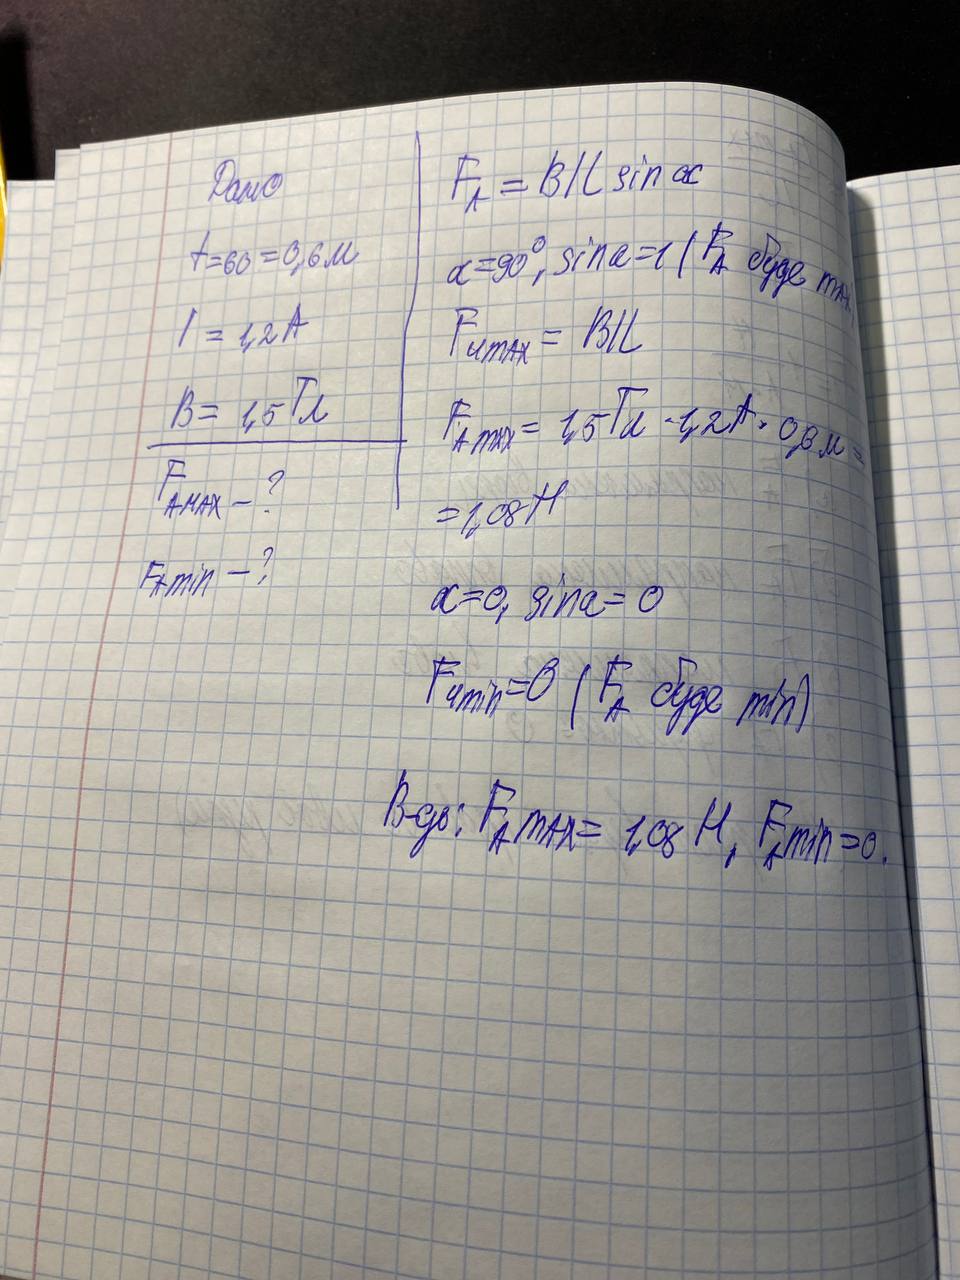 Дано
t=60=0,6м
I = 1,2А
B = 1,5 Тл
F_Amax – ?
F_Amin – ?
F_A = BIL sin α
α=90°, sinα=1 (F_A буде max)
F_Amax = BIL
F_Amax = 1,5Тл · 1,2А · 0,6 м =
= 1,08 Н
α=0, sinα = 0
F_Amin=0 (F_A буде min)
В-дь: F_Amax = 1,08 Н, F_Amin=0.